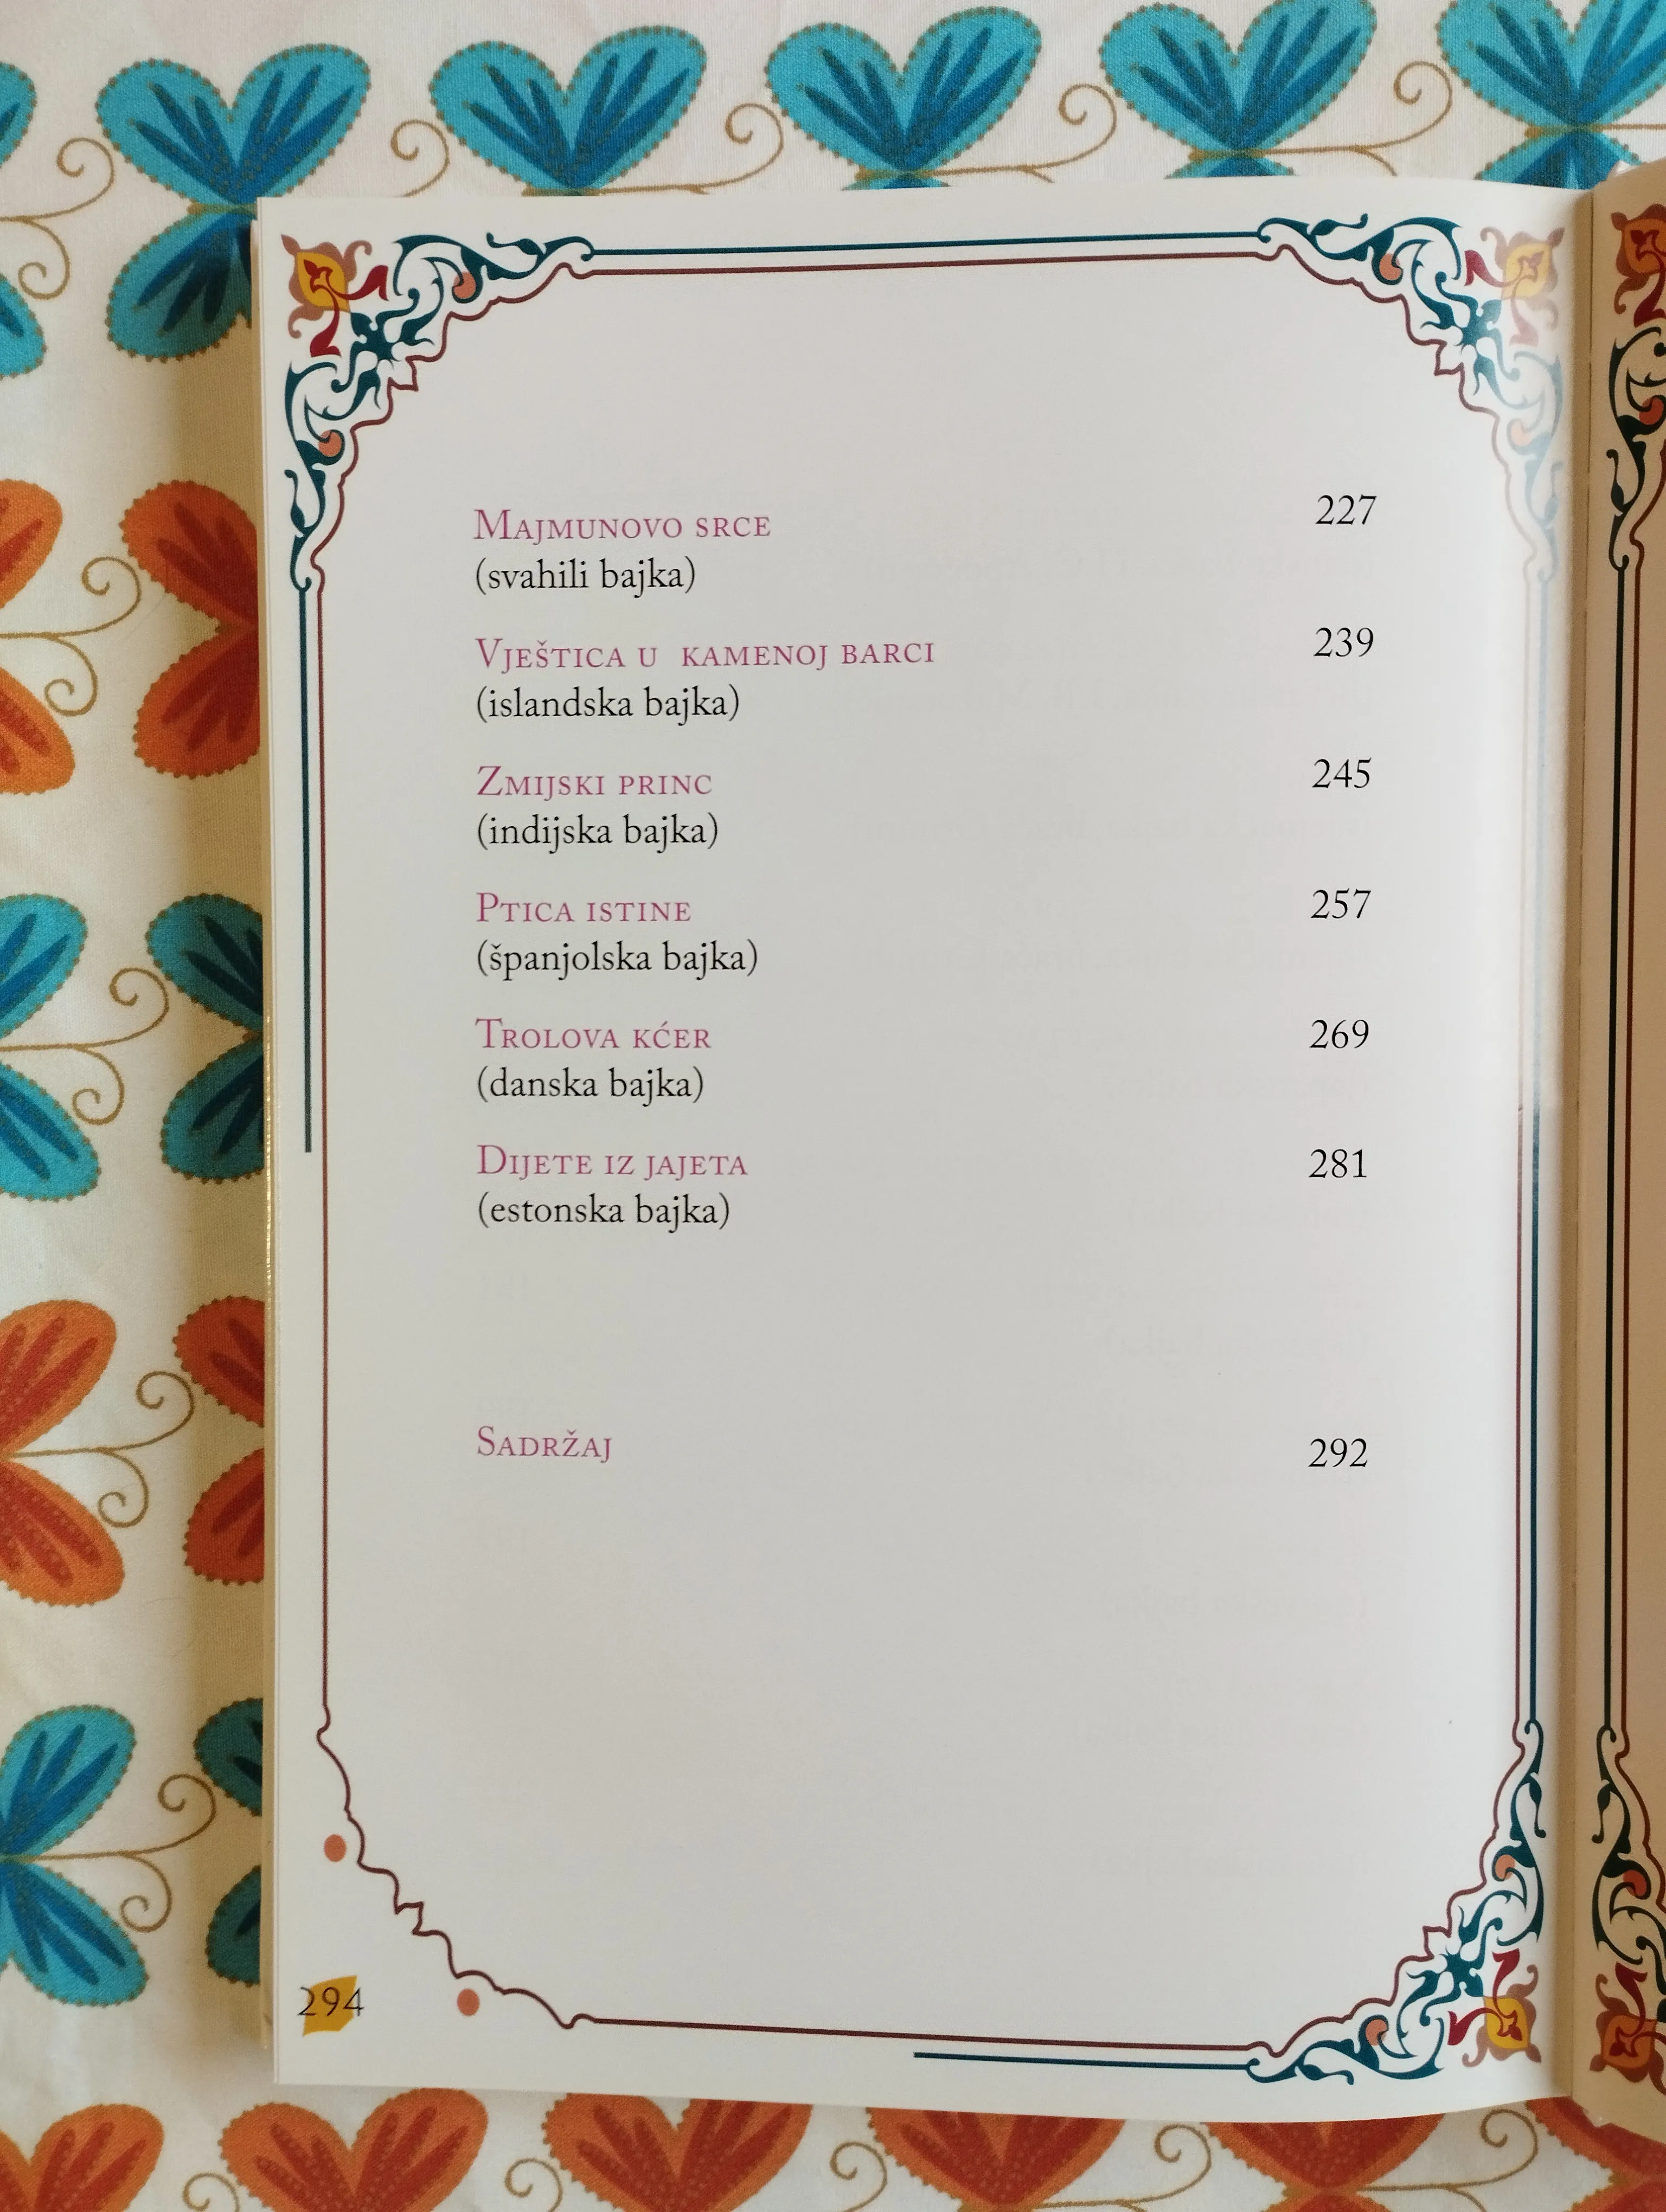 Majmunovo srce 227
(svahili bajka)
Vještica u kamenoj barci 239
(islandska bajka)
Zmijski princ 245
(indijska bajka)
Ptica istine 257
(španjolska bajka)
Trolova kćer 269
(danska bajka)
Dijete iz jajeta 281
(estonska bajka)
Sadržaj 292
294